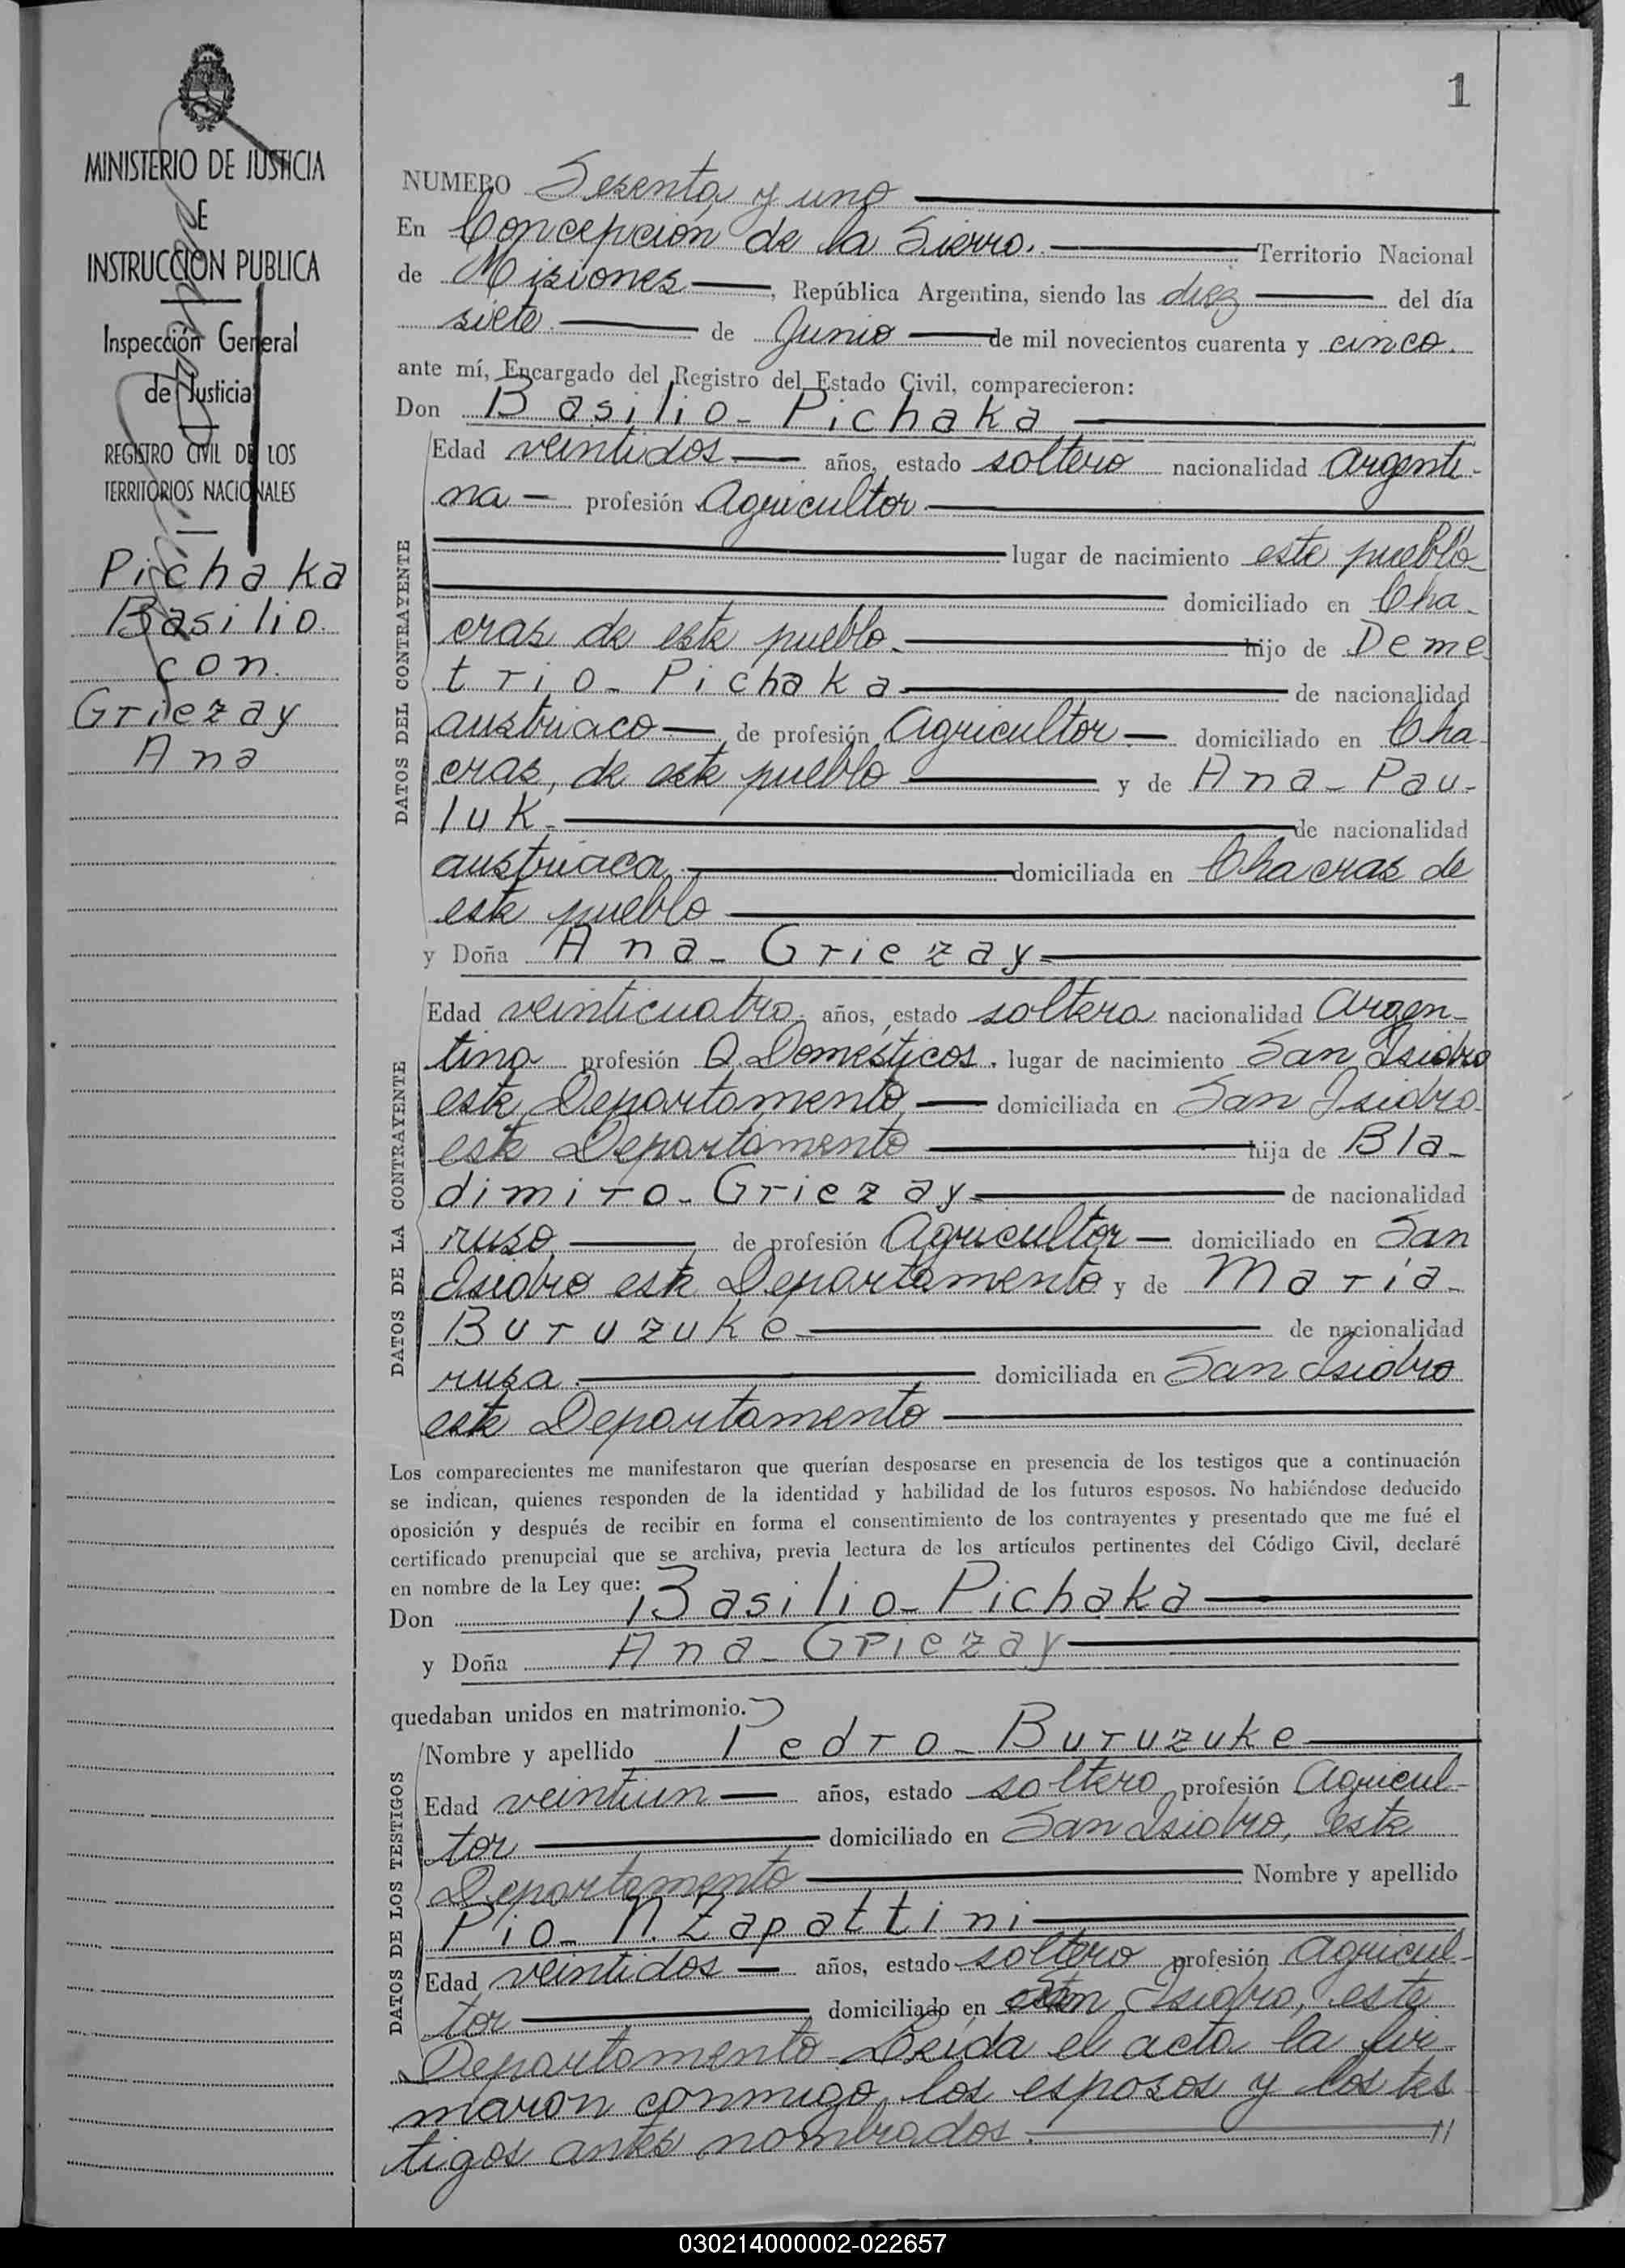 1
MINISTERIO DE JUSTICIA
E
INSTRUCCION PUBLICA
Inspección General
de Justicia
REGISTRO CIVIL DE LOS
TERRITORIOS NACIONALES
Pichaka
Basilio
con
Griezay
Ana
NUMERO Sesenta y uno
En Concepción de la Sierra. Territorio Nacional
de Misiones, República Argentina, siendo las diez del día
siete de Junio de mil novecientos cuarenta y cinco.
ante mí, Encargado del Registro del Estado Civil, comparecieron:
Don Basilio- Pichaka
DATOS DEL CONTRAYENTE
Edad veintidos años, estado soltero nacionalidad Argenti-
na profesión Agricultor
lugar de nacimiento este pueblo
domiciliado en Cha-
cras de este pueblo. hijo de Deme
trio- Pichaka de nacionalidad
austriaco de profesión Agricultor domiciliado en Cha-
cras, de este pueblo y de Ana- Pau-
luk. de nacionalidad
austriaca domiciliada en Chacras de
este pueblo
y Doña Ana- Griezay
DATOS DE LA CONTRAYENTE
Edad veinticuatro. años, estado soltera nacionalidad Argen-
tina profesión Q. Domesticos. lugar de nacimiento San Isidro
este Departamento domiciliada en San Isidro
este Departamento hija de Bla-
dimiro- Griezay de nacionalidad
ruso, de profesión Agricultor domiciliado en San
Isidro este Departamento y de María-
Buruzuke de nacionalidad
rusa. domiciliada en San Isidro
este Departamento
Los comparecientes me manifestaron que querían desposarse en presencia de los testigos que a continuación
se indican, quienes responden de la identidad y habilidad de los futuros esposos. No habiéndose deducido
oposición y después de recibir en forma el consentimiento de los contrayentes y presentado que me fué el
certificado prenupcial que se archiva, previa lectura de los artículos pertinentes del Código Civil, declaré
en nombre de la Ley que:
Don Basilio- Pichaka
y Doña Ana- Griezay
quedaban unidos en matrimonio.
DATOS DE LOS TESTIGOS
Nombre y apellido Pedro- Buruzuke
Edad veintiun años, estado soltero profesión Agricul-
tor domiciliado en San Isidro, este
Departamento Nombre y apellido
Pio- N. Zapattini
Edad veintidos años, estado soltero profesión Agricul-
tor domiciliado en San Isidro, este
Departamento- Leida el acta la fir-
maron conmigo, los esposos y los tes
tigos antes nombrados. "
030214000002-022657